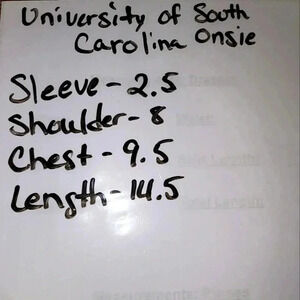 University of South
Carolina Onsie
Sleeve - 2.5
Shoulder - 8
Chest - 9.5
Length - 14.5